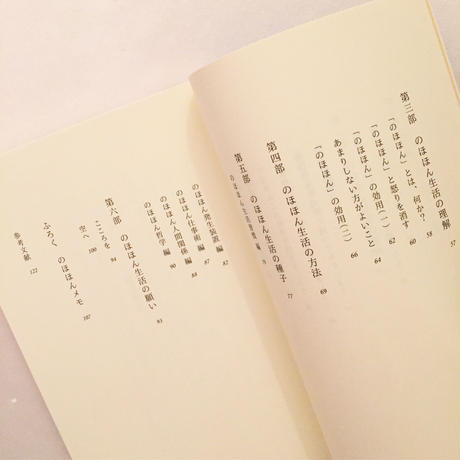 第三部 のほほん生活の理解 57
「のほほん」とは、何か? 58
「のほほん」と怒りを消す 60
「のほほん」の効用(一) 62
あまりしない方がよいこと 64
「のほほん」の効用(二) 66
第四部 のほほん生活の方法 69
第五部 のほほん生活の種子 77
のほほん生活 編
のほほん発生装置 編 82
のほほん仕事術 編 85
のほほん人間関係 編
のほほん哲学 編 90
第六部 のほほん生活の願い 93
こころを 94
空へ 100
ふろく のほほんメモ 107
参考文献 122